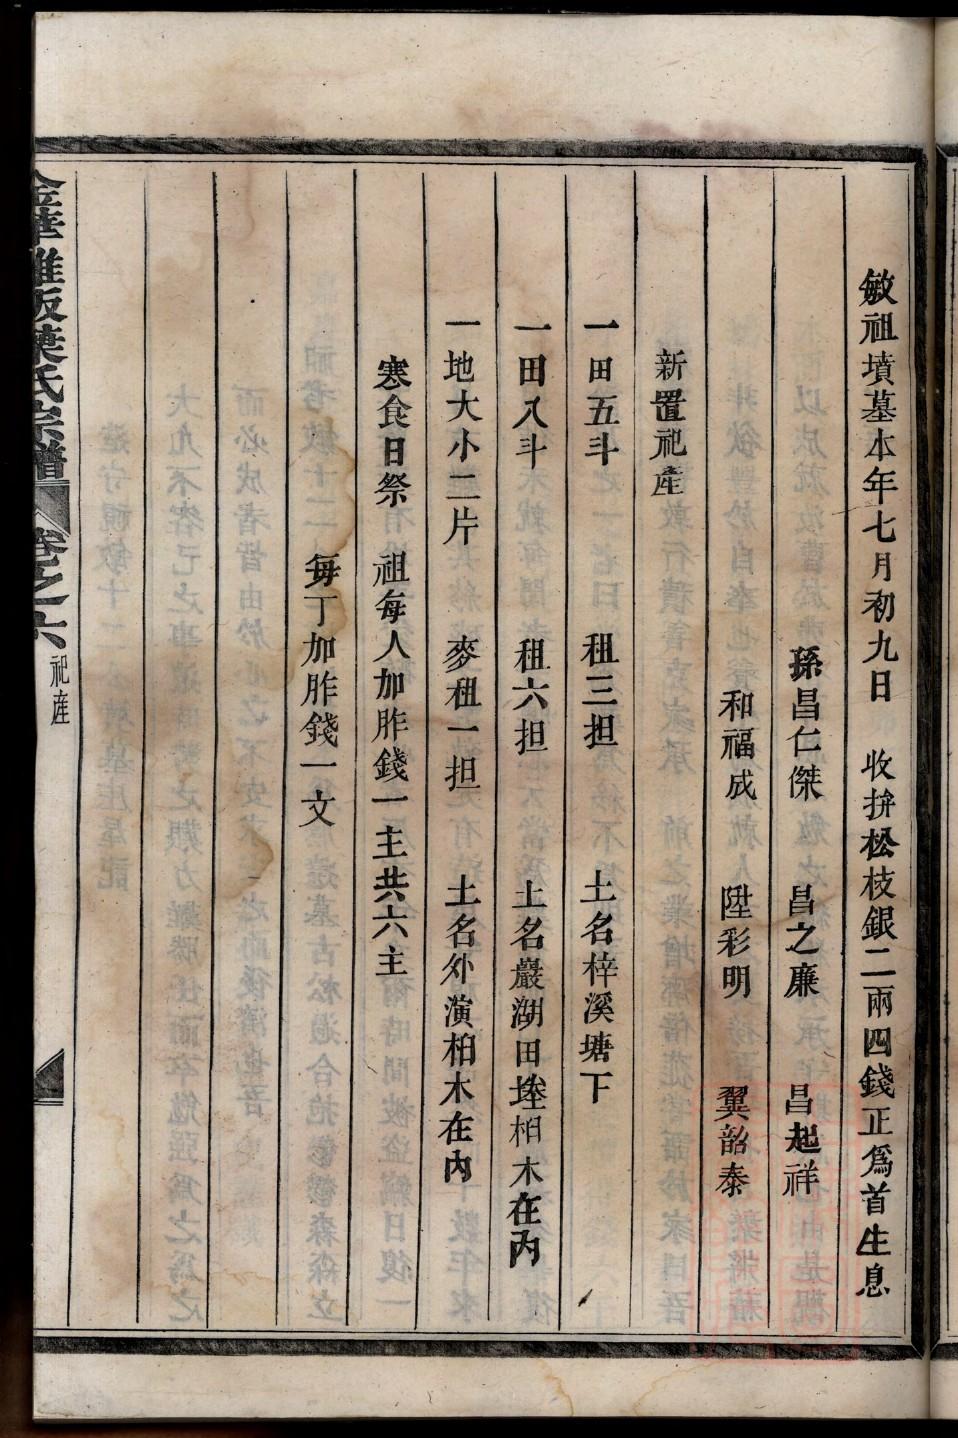 敏祖墳墓本年七月初九日　收拚松枝銀二兩四錢正爲首生息
孫昌仁傑　昌之廉　昌起祥
和福成　陞彩明　翼韶泰
新置祀產
一田五斗　租三担　土名梓溪塘下
一田八斗　租六担　土名嚴湖田塍柏木在內
一地大小二片　麥租一担　土名外演柏木在內
寒食日祭　祖每人加胙錢一主共六主
每丁加胙錢一文
金華雅畈葉氏宗譜　卷之六　祀產